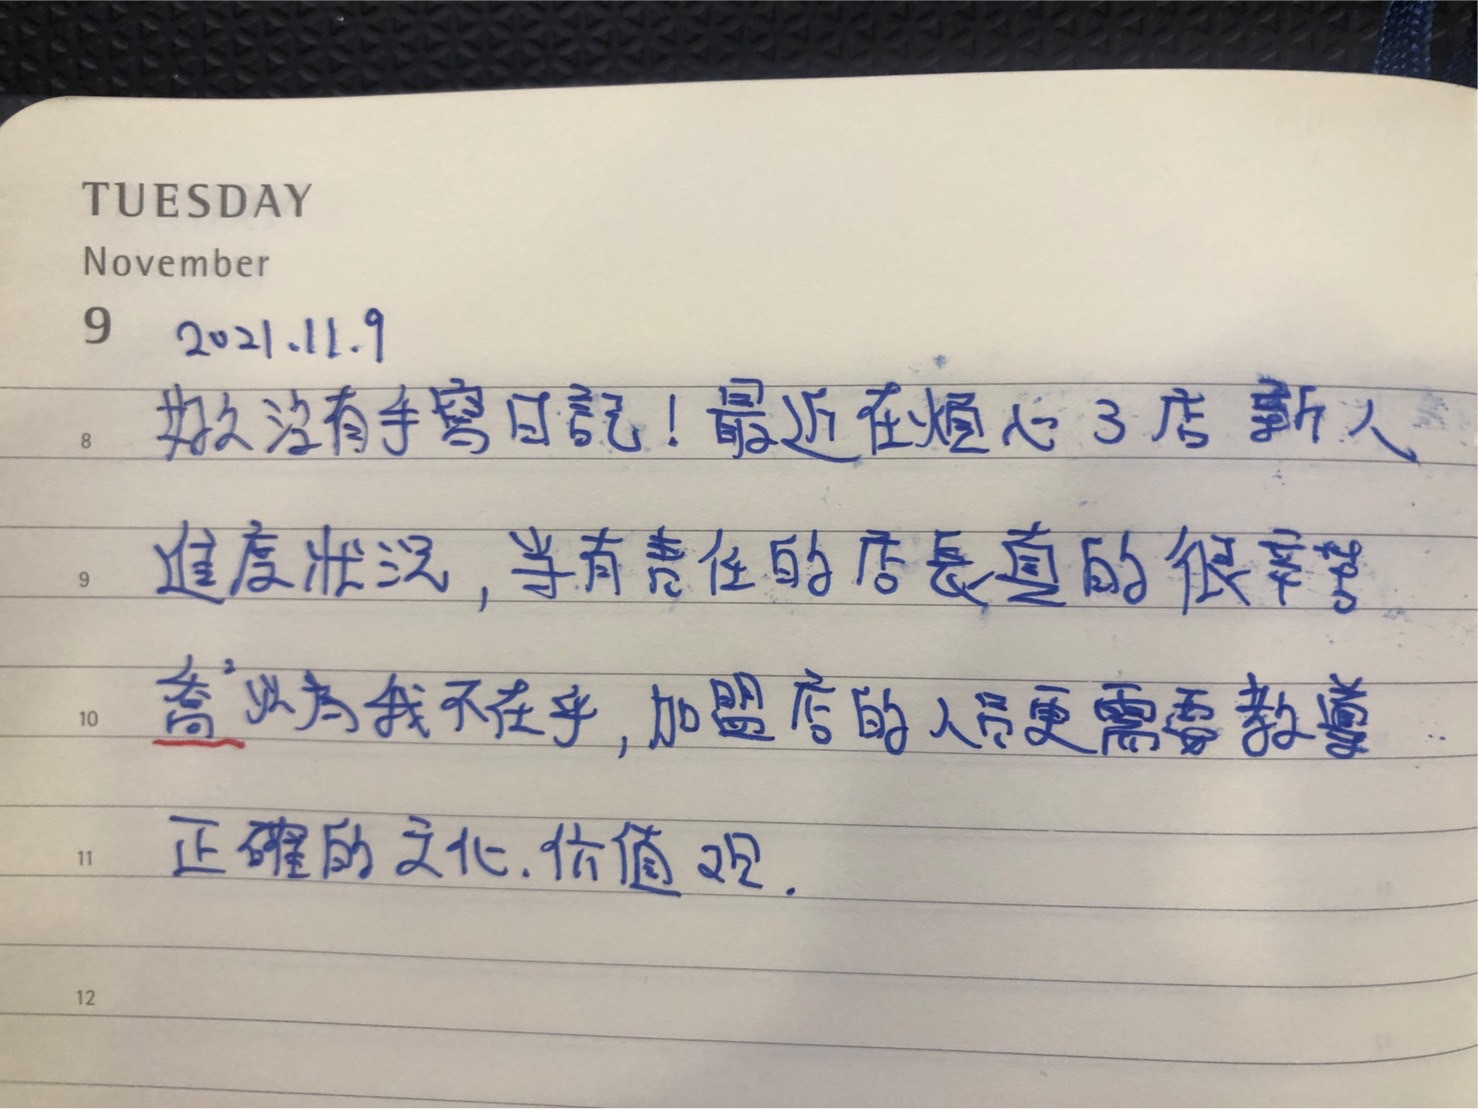 TUESDAY
November
9 2021.11.9
8 好久沒有手寫日記！最近在煩心3店新人
9 進度狀況，当有責任的店長真的很辛苦
10 喬²以為我不在乎，加盟店的人員更需要教導
11 正確的文化.価值观.
12